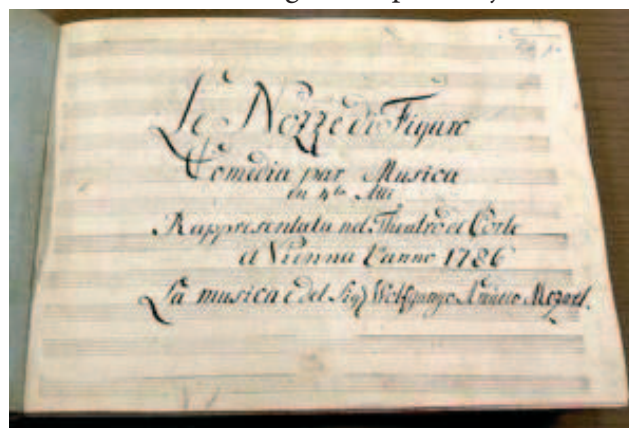 Le Nozze di Figaro
Comedia par Musica
in 4tto Atti
Rappresentata nel Theatro di Corte
a Vienna l'anno 1786
La musica è del Sigr Wolfgango Amadeo Mozart.